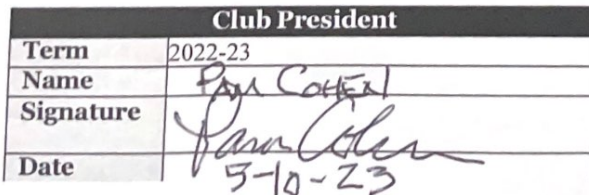 Club President
Term 2022-23
Name PAM COHEN
Signature Pam Cohen
Date 5-10-23